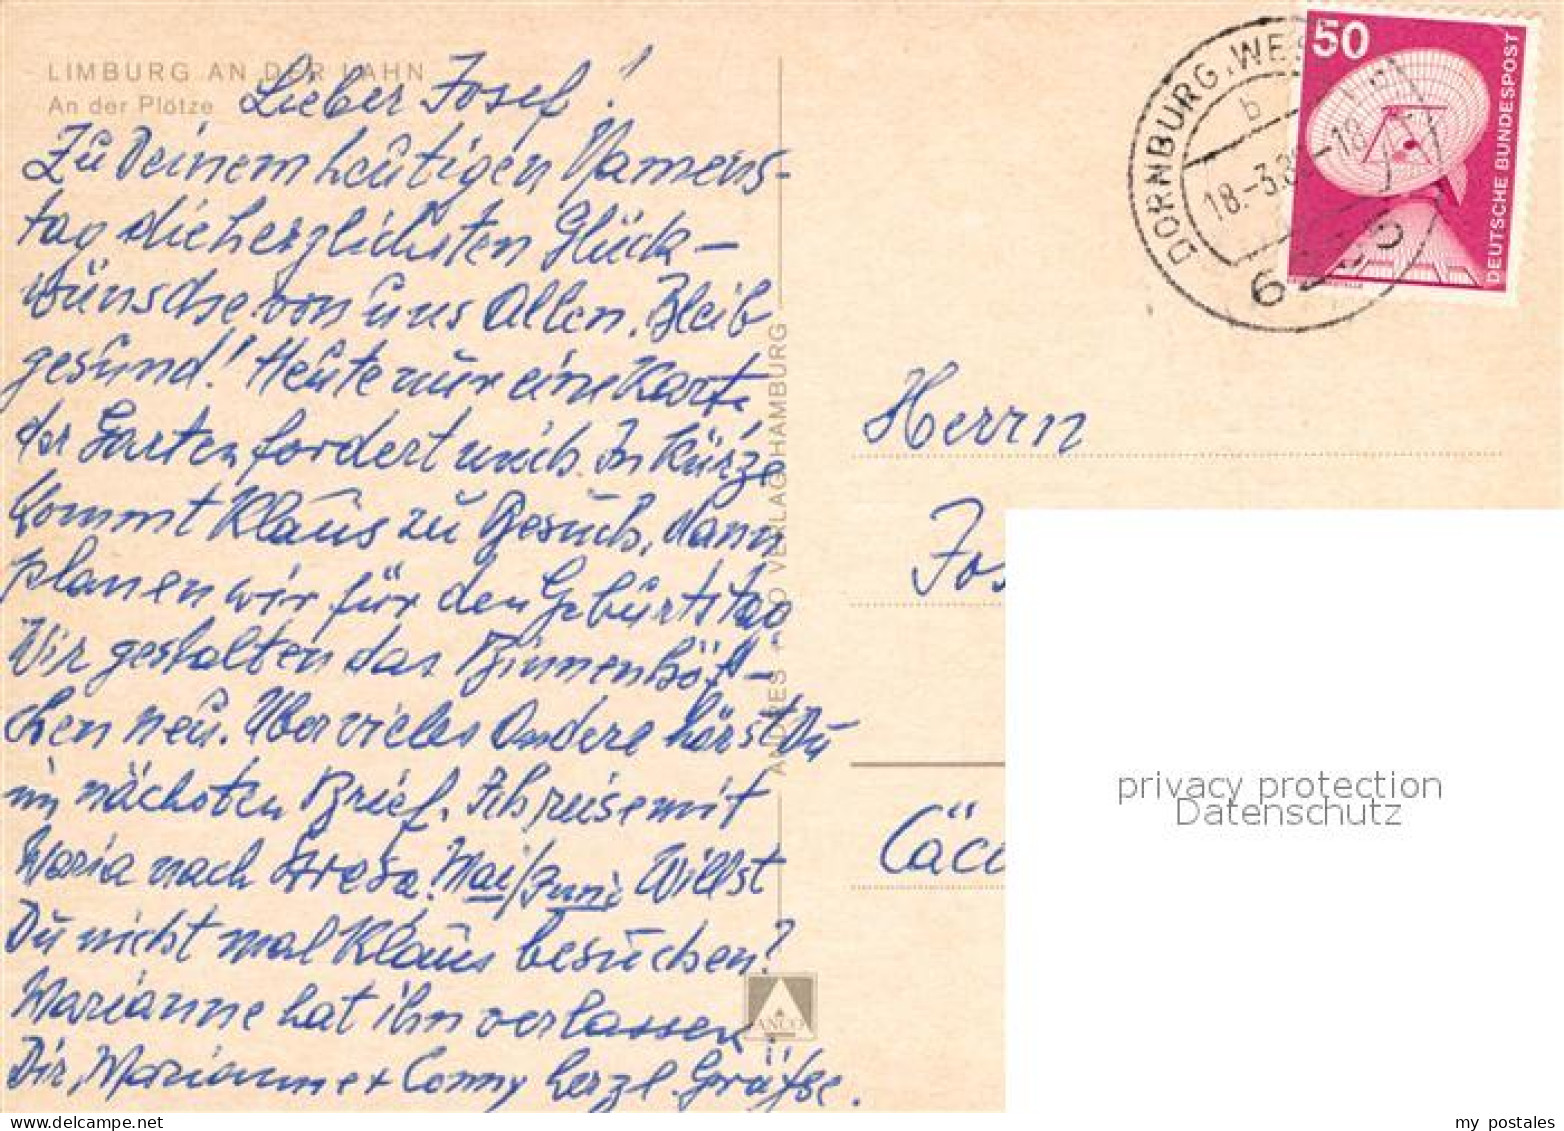 LIMBURG AN DER LAHN
An der Plötze
Lieber Josef!
Zu Deinem heutigen Namens-
tag die herzlichsten Glück-
wünsche von uns Allen. Bleib
gesund! Heute nur eine Karte
der Garten fordert mich. In Kürze
kommt Klaus zu Besuch, dann
planen wir für den Geburtstag
Wir gestalten das Binnenhöf-
chen neu. Über vieles Andere hörst Du
im nächsten Brief. Ich reise mit
Maria nach Stresa. Mai/Juni Willst
Du nicht mal Klaus besuchen?
Marianne hat ihn verlassen
Dir, Marianne + Conny herzl. Grüße.
ANDRES + CO VERLAG HAMBURG
ANCO
DORNBURG, WE
b
18.-3.8 -18
6
50
DEUTSCHE BUNDESPOST
Herrn
Jos
Cäci
privacy protection
Datenschutz
my postales